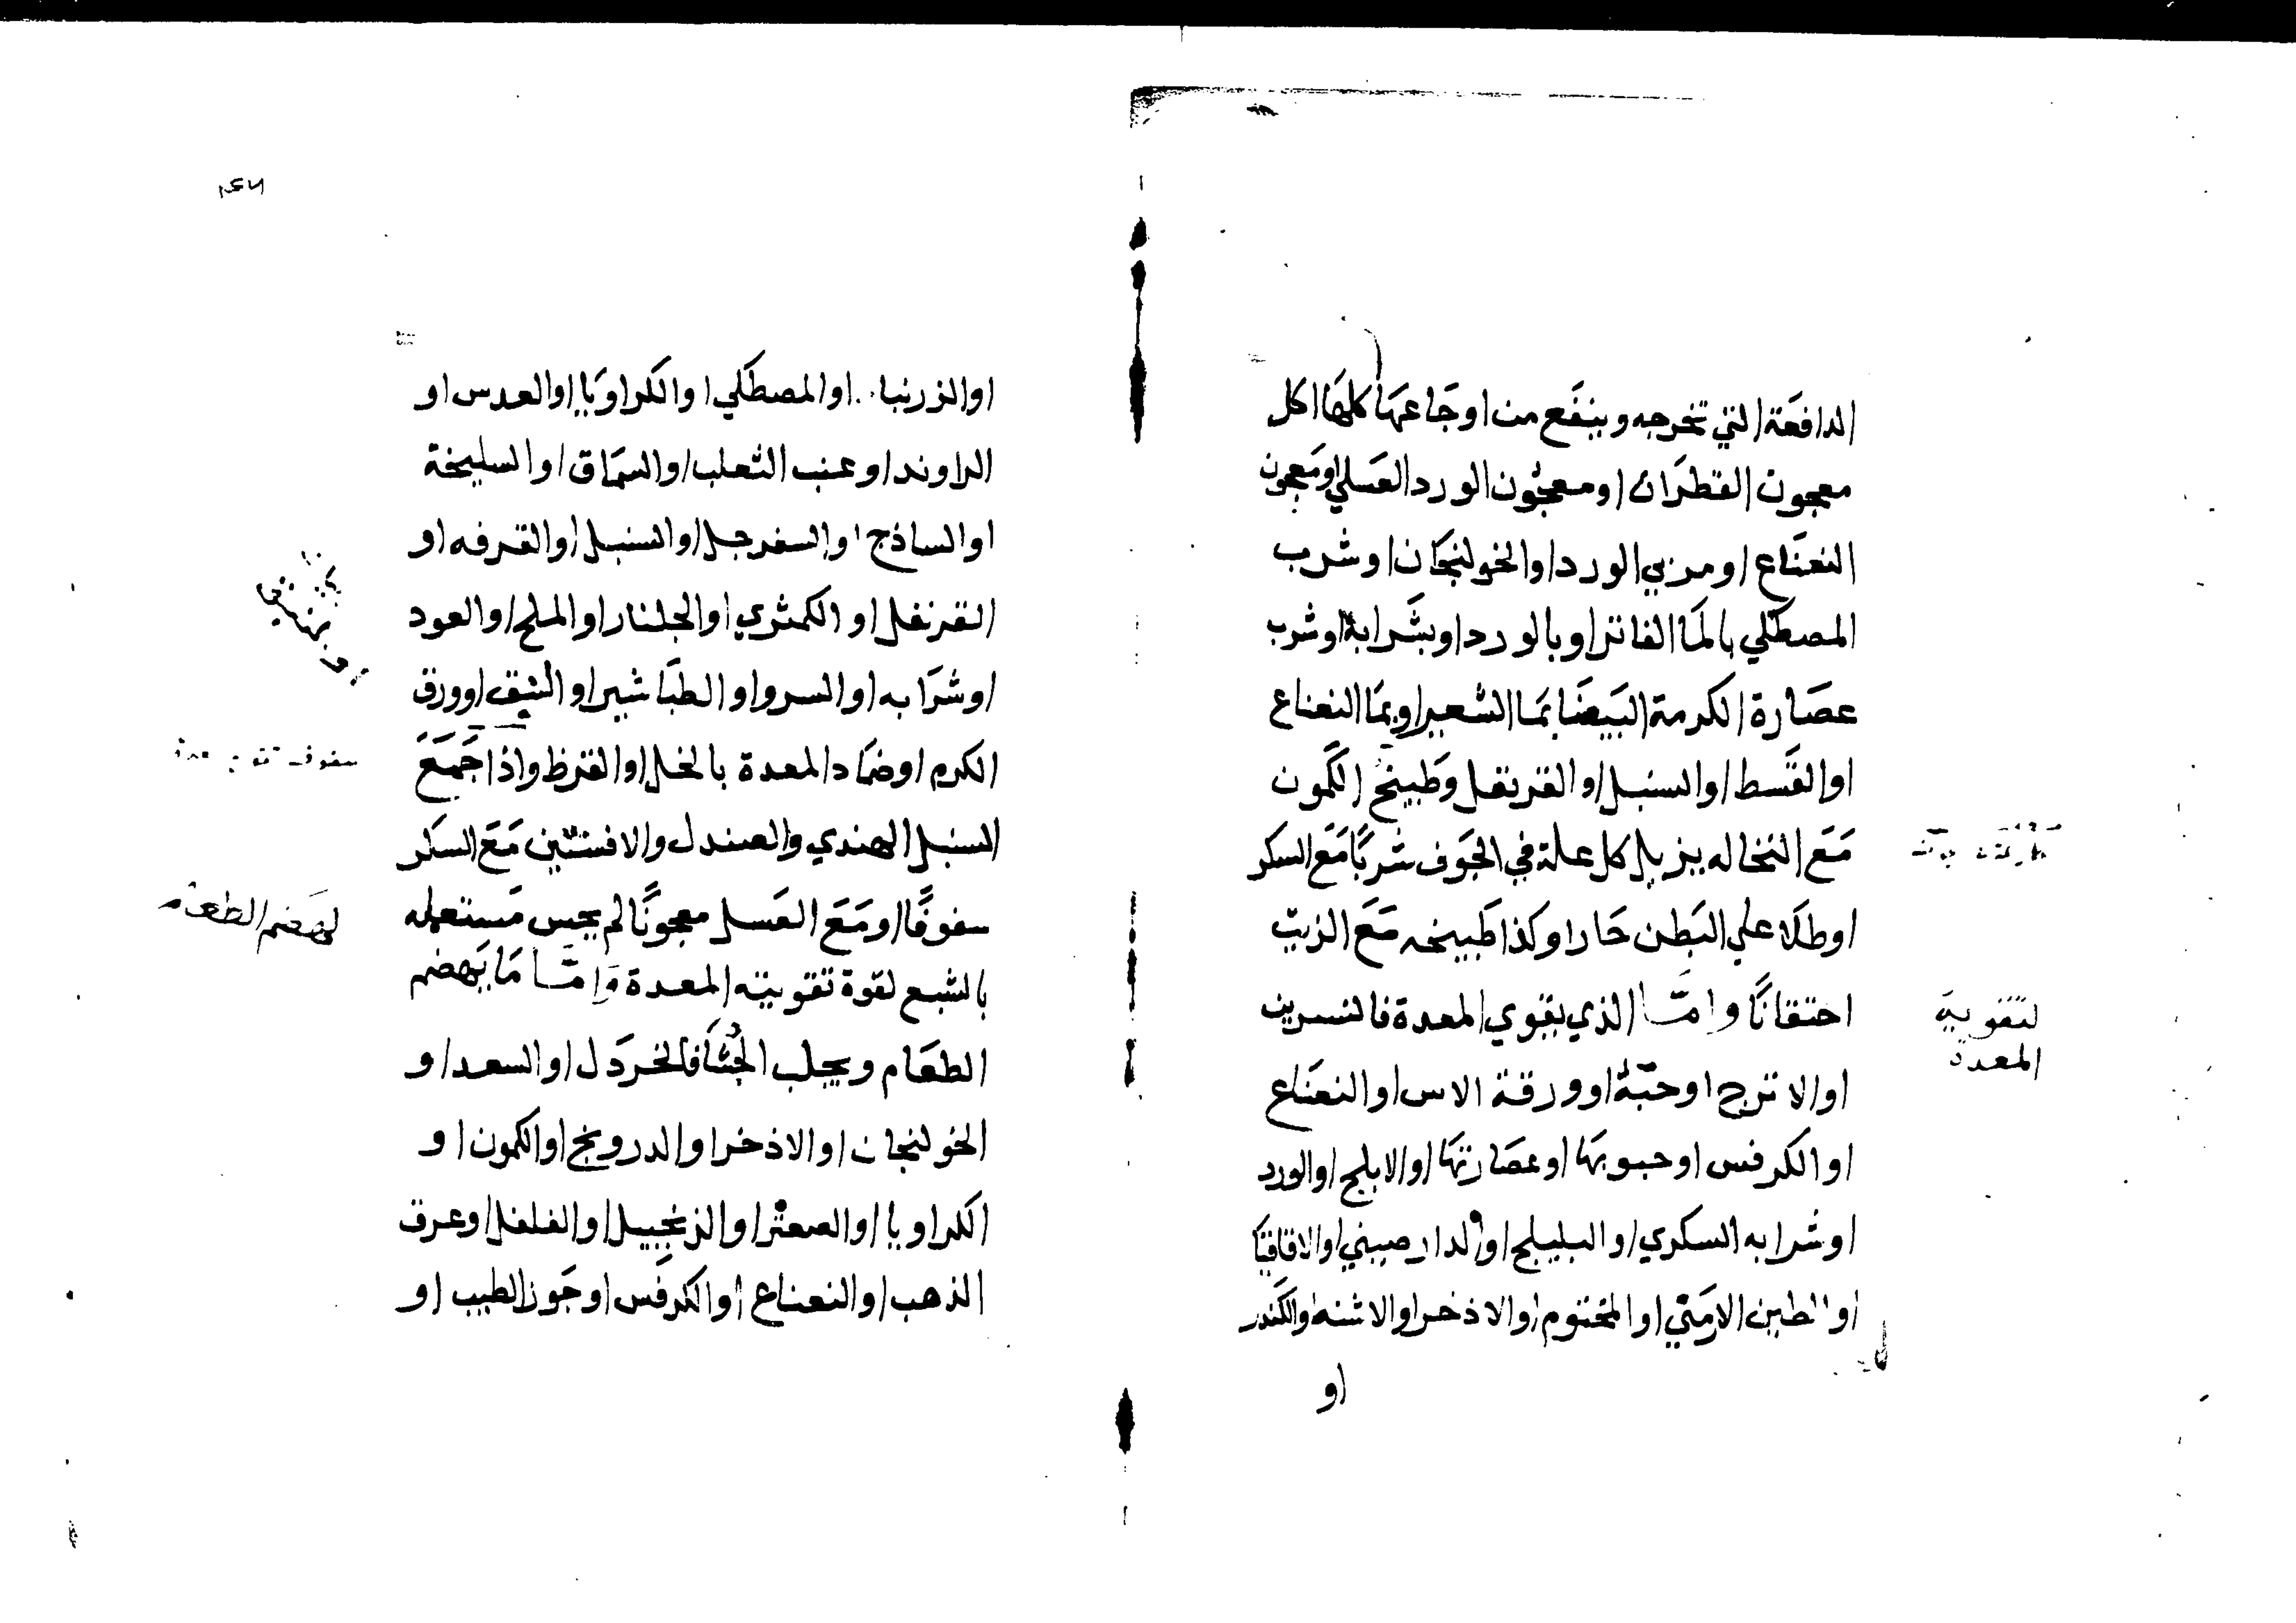 الدافعة التي تخرجه وينفع من اوجاعها كلها اكل
معجون القطران او معجون الورد العسلي او معجون
النعناع او مربي الورد او الخولنجان او شرب
المصطكي بالما الفاتر او بالورد او بشرابه او شرب
عصارة الكرمة البيضا بما الشعير او بما النعناع
او القسط او السنبل او القرنفل وطبيخ الكمون
مع النخاله يزيل كل علة في الجوف شربا مع السكر
او طلا علي البطن حارا وكذا طبيخه مع الزيت
احتقانا واما الذي يقوي المعدة فالنسرين
لتقوية
المعدة
او الاترج او حبه او ورقة الاس او النعناع
او الكرفس او حبوبها او عصارتها او الابلج او الورد
او شرابه السكري او البليلج او الدارصيني او الاقاقيا
او الطين الارمني او المختوم او الاذخر او الاشنه او الكندر
او
او الزرنبا او المصطكي او الكراويا او العدس او
الراوند او عنب الثعلب او السماق او السليخة
او الساذج او السفرجل او السنبل او القرفه او
القرنفل او الكمثري او الجلنار او الملح او العود
او شرابه او السرو او الطباشير او النبق او ورق
الكرم او ضماد المعدة بالخل او القرظ واذا جمع
سفوف
السنبل الهندي والصندل والافسنتين مع السكر
سفوفا او مع العسل معجونا لم يحس مستعمله
لهضم الطعام
بالشبع لقوة تقويته المعدة واما ما يهضم
الطعام ويجلب الجشا فالخردل او السعد او
الخولنجان او الاذخر او الدرونج او الكمون او
الكراويا او الصعتر او الزنجبيل او الفلفل او عرق
الذهب او النعناع او الكرفس او جوز الطيب او